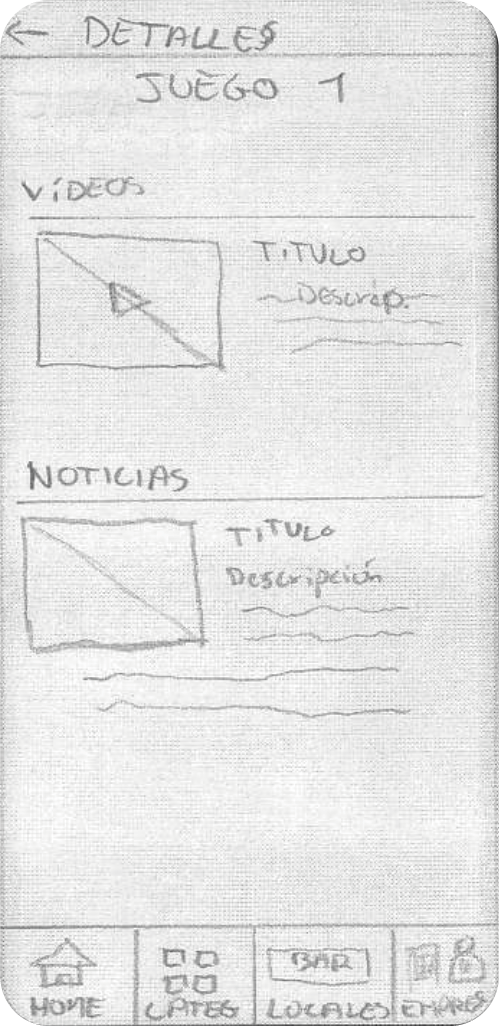 ← DETALLES
JUEGO 1
VÍDEOS
TITULO
Descrip.
NOTICIAS
TITULO
Descripción
HOME
CATEG
BAR
LOCALES
EMPRES